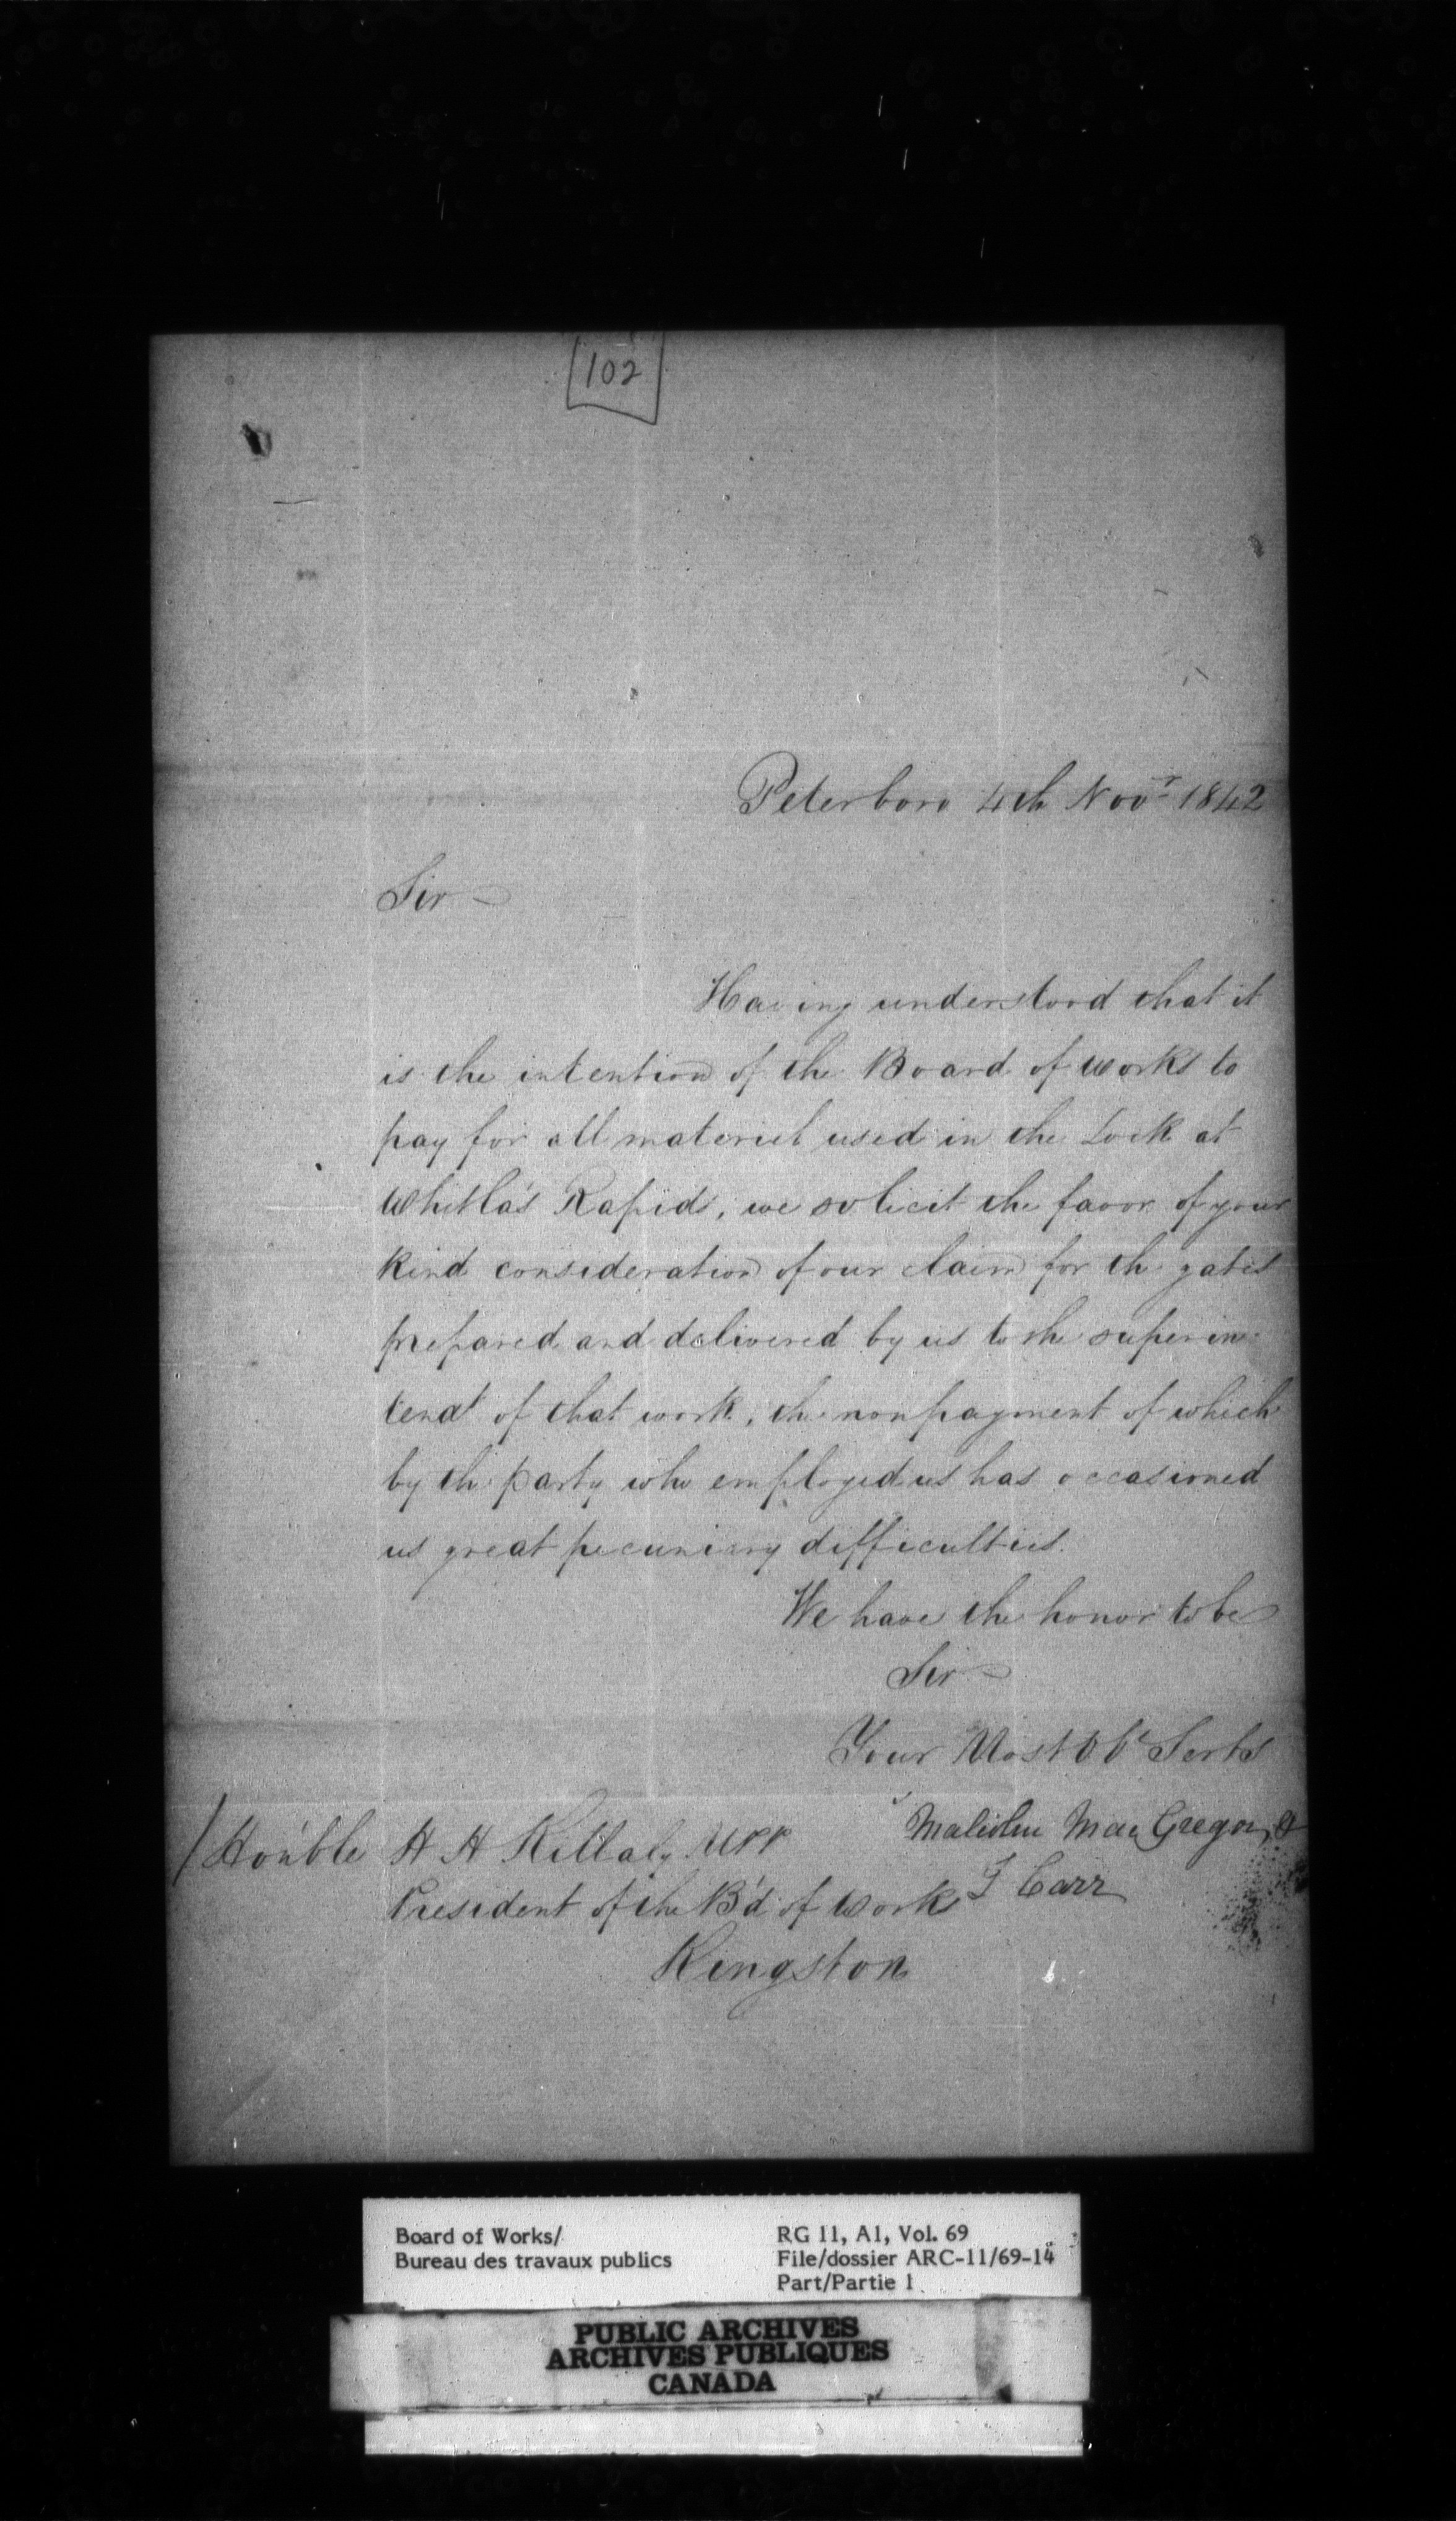 102
Peterboro 4th Novr 1842
Sir
Having understood that it
is the intention of the Board of works to
pay for all material used in the Lock at
Whitla's Rapids, we solicit the favor of your
kind consideration of our claim for the gates
prepared and delivered by us to the superin
tendt of that work, the nonpayment of which
by the party who employed us has occasioned
us great pecuniary difficulties.
We have the honor to be
Sir
Your Most Obt Serts
Malcolm MacGregor &
Carr
Honble H H Killaly MPP
President of the B'd of Works
Kingston
Board of Works/
Bureau des travaux publics
RG 11, A1, Vol. 69
File/dossier ARC-11/69-14
Part/Partie 1
PUBLIC ARCHIVES
ARCHIVES PUBLIQUES
CANADA